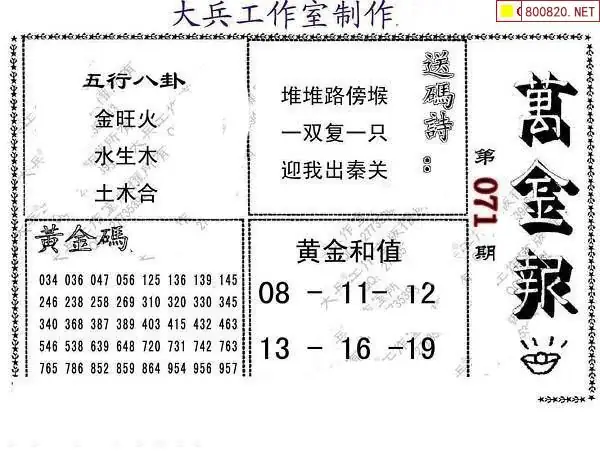 大兵工作室制作
800820.NET
五行八卦
金旺火
水生木
土木合
送碼詩:
堆堆路傍堠
一双复一只
迎我出秦关
萬金報
第071期
黃金碼
034 036 047 056 125 136 139 145
246 238 258 269 310 320 330 345
340 368 387 389 403 415 432 463
546 538 639 648 720 731 742 763
765 786 852 859 864 954 956 957
黄金和值
08 - 11- 12
13 - 16 -19